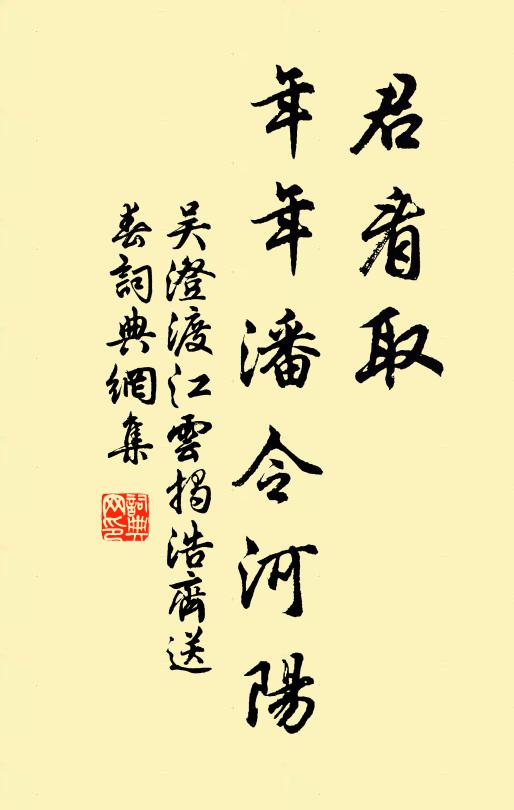 君看取
年年潘令河陽
吳澄渡江雲揭浩齋送
春詞典網集
詞典網印